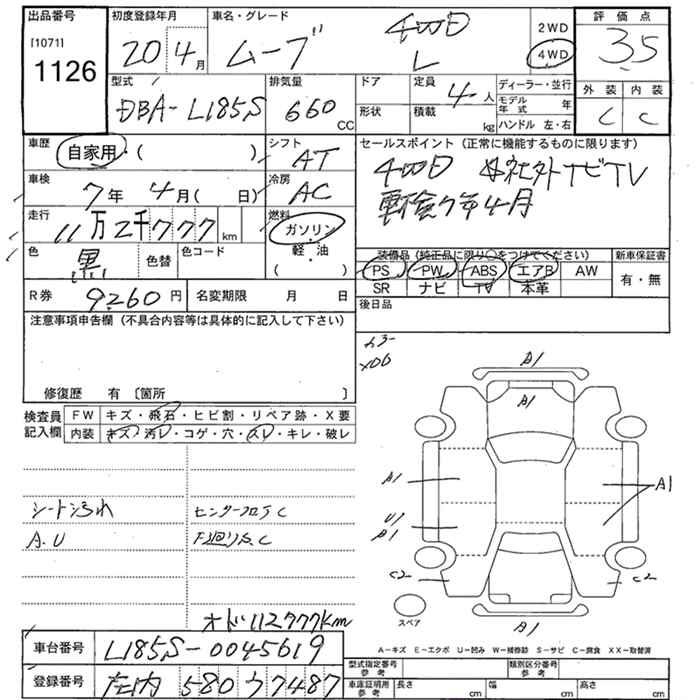 出品番号 初度登録年月 車名・グレード 評価点
[1071] 20年4月 ムーブ 4WD L 2WD 4WD 3.5
1126
型式 排気量 ドア 定員 ディーラー・並行 外装 内装
DBA-L185S 660 CC 4人 モデル年式 年 C C
形状 積載 kg ハンドル 左・右
車歴 自家用・( ) シフト AT セールスポイント(正常に機能するものに限ります)
車検 7年 4月( 日) 冷房 AC 4WD 社外ナビTV
車検7年4月
走行 11万2千777km 燃料 ガソリン 軽・油 ( )
色 黒 色替 色コード 装備品(純正品に限り○をつけてください) 新車保証書
PS PW ABS エアB AW 有・無
R券 9260円 名変期限 月 日 SR ナビ TV 本革
後日品
注意事項申告欄(不具合内容等は具体的に記入して下さい)
修復歴 有 〔箇所 〕
検査員記入欄 FW キズ・飛石・ヒビ割・リペア跡・X要
内装 キズ・汚レ・コゲ・穴・スレ・キレ・破レ
A1
A1
A1
A1
U1
A1
C2 C2
A.U
スペア
A1
オド112777km
A-キズ E-エクボ U-凹み W-補修跡 S-サビ C-腐食 XX-取替済
車台番号 L185S-0045619
型式指定番号 参考 類別区分番号 参考
登録番号 580 7487
車庫証明用 参考 長さ cm 幅 cm 高さ cm